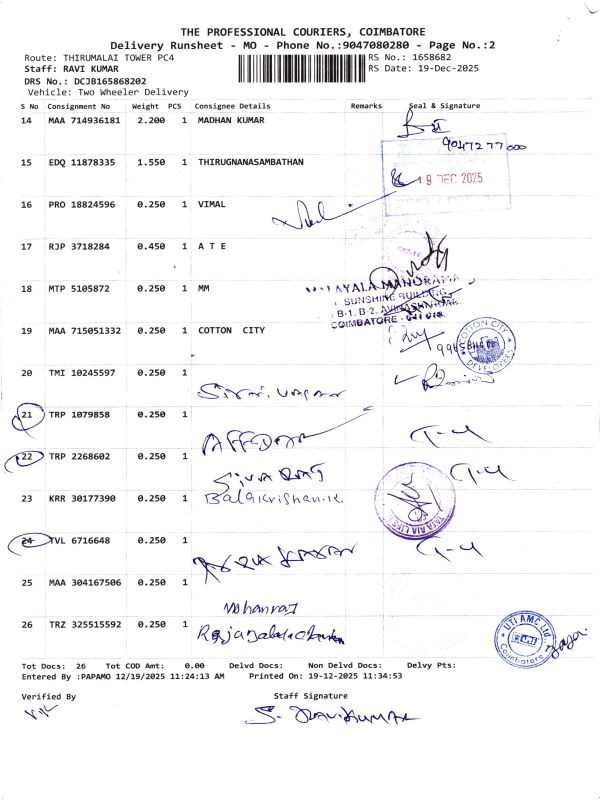 THE PROFESSIONAL COURIERS, COIMBATORE
Delivery Runsheet - MO - Phone No.:9047080280 - Page No.:2
Route: THIRUMALAI TOWER PC4 RS No.: 1658682
Staff: RAVI KUMAR RS Date: 19-Dec-2025
DRS No.: DCJB165868202
Vehicle: Two Wheeler Delivery
S No Consignment No Weight PCS Consignee Details Remarks Seal & Signature
14 MAA 714936181 2.200 1 MADHAN KUMAR
9047277000
15 EDQ 11878335 1.550 1 THIRUGNANASAMBATHAN
19 DEC 2025
16 PRO 18824596 0.250 1 VIMAL
17 RJP 3718284 0.450 1 A T E
18 MTP 5105872 0.250 1 MM
MALAYALA MANORAMA
SUNSHINE BUILDING
B-1, B-2, AVINASHI ROAD
COIMBATORE - 641 018
19 MAA 715051332 0.250 1 COTTON CITY
COTTON CITY DEVELOPERS
20 TMI 10245597 0.250 1
21 TRP 1079858 0.250 1
22 TRP 2268602 0.250 1
Sivaraj
23 KRR 30177390 0.250 1 Balakrishan.K.
TATA AIA LIFE
24 TVL 6716648 0.250 1
25 MAA 304167506 0.250 1
Mohanraj
26 TRZ 325515592 0.250 1
UTI AMC Ltd. Coimbatore
Tot Docs: 26 Tot COD Amt: 0.00 Delvd Docs: Non Delvd Docs: Delvy Pts:
Entered By :PAPAMO 12/19/2025 11:24:13 AM Printed On: 19-12-2025 11:34:53
Verified By Staff Signature
S. RAVIKUMAR